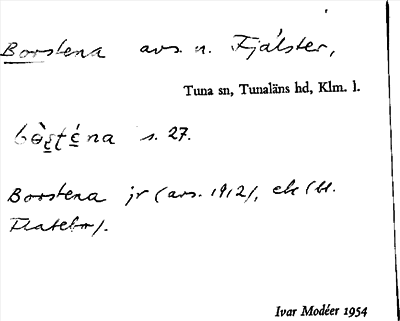 Borstena avs. n. Fjälster,
Tuna sn, Tunaläns hd, Klm. l.
s. 27.
Borstena jr (avs. 1912), ek (bl.
Flatebo).
Ivar Modéer 1954